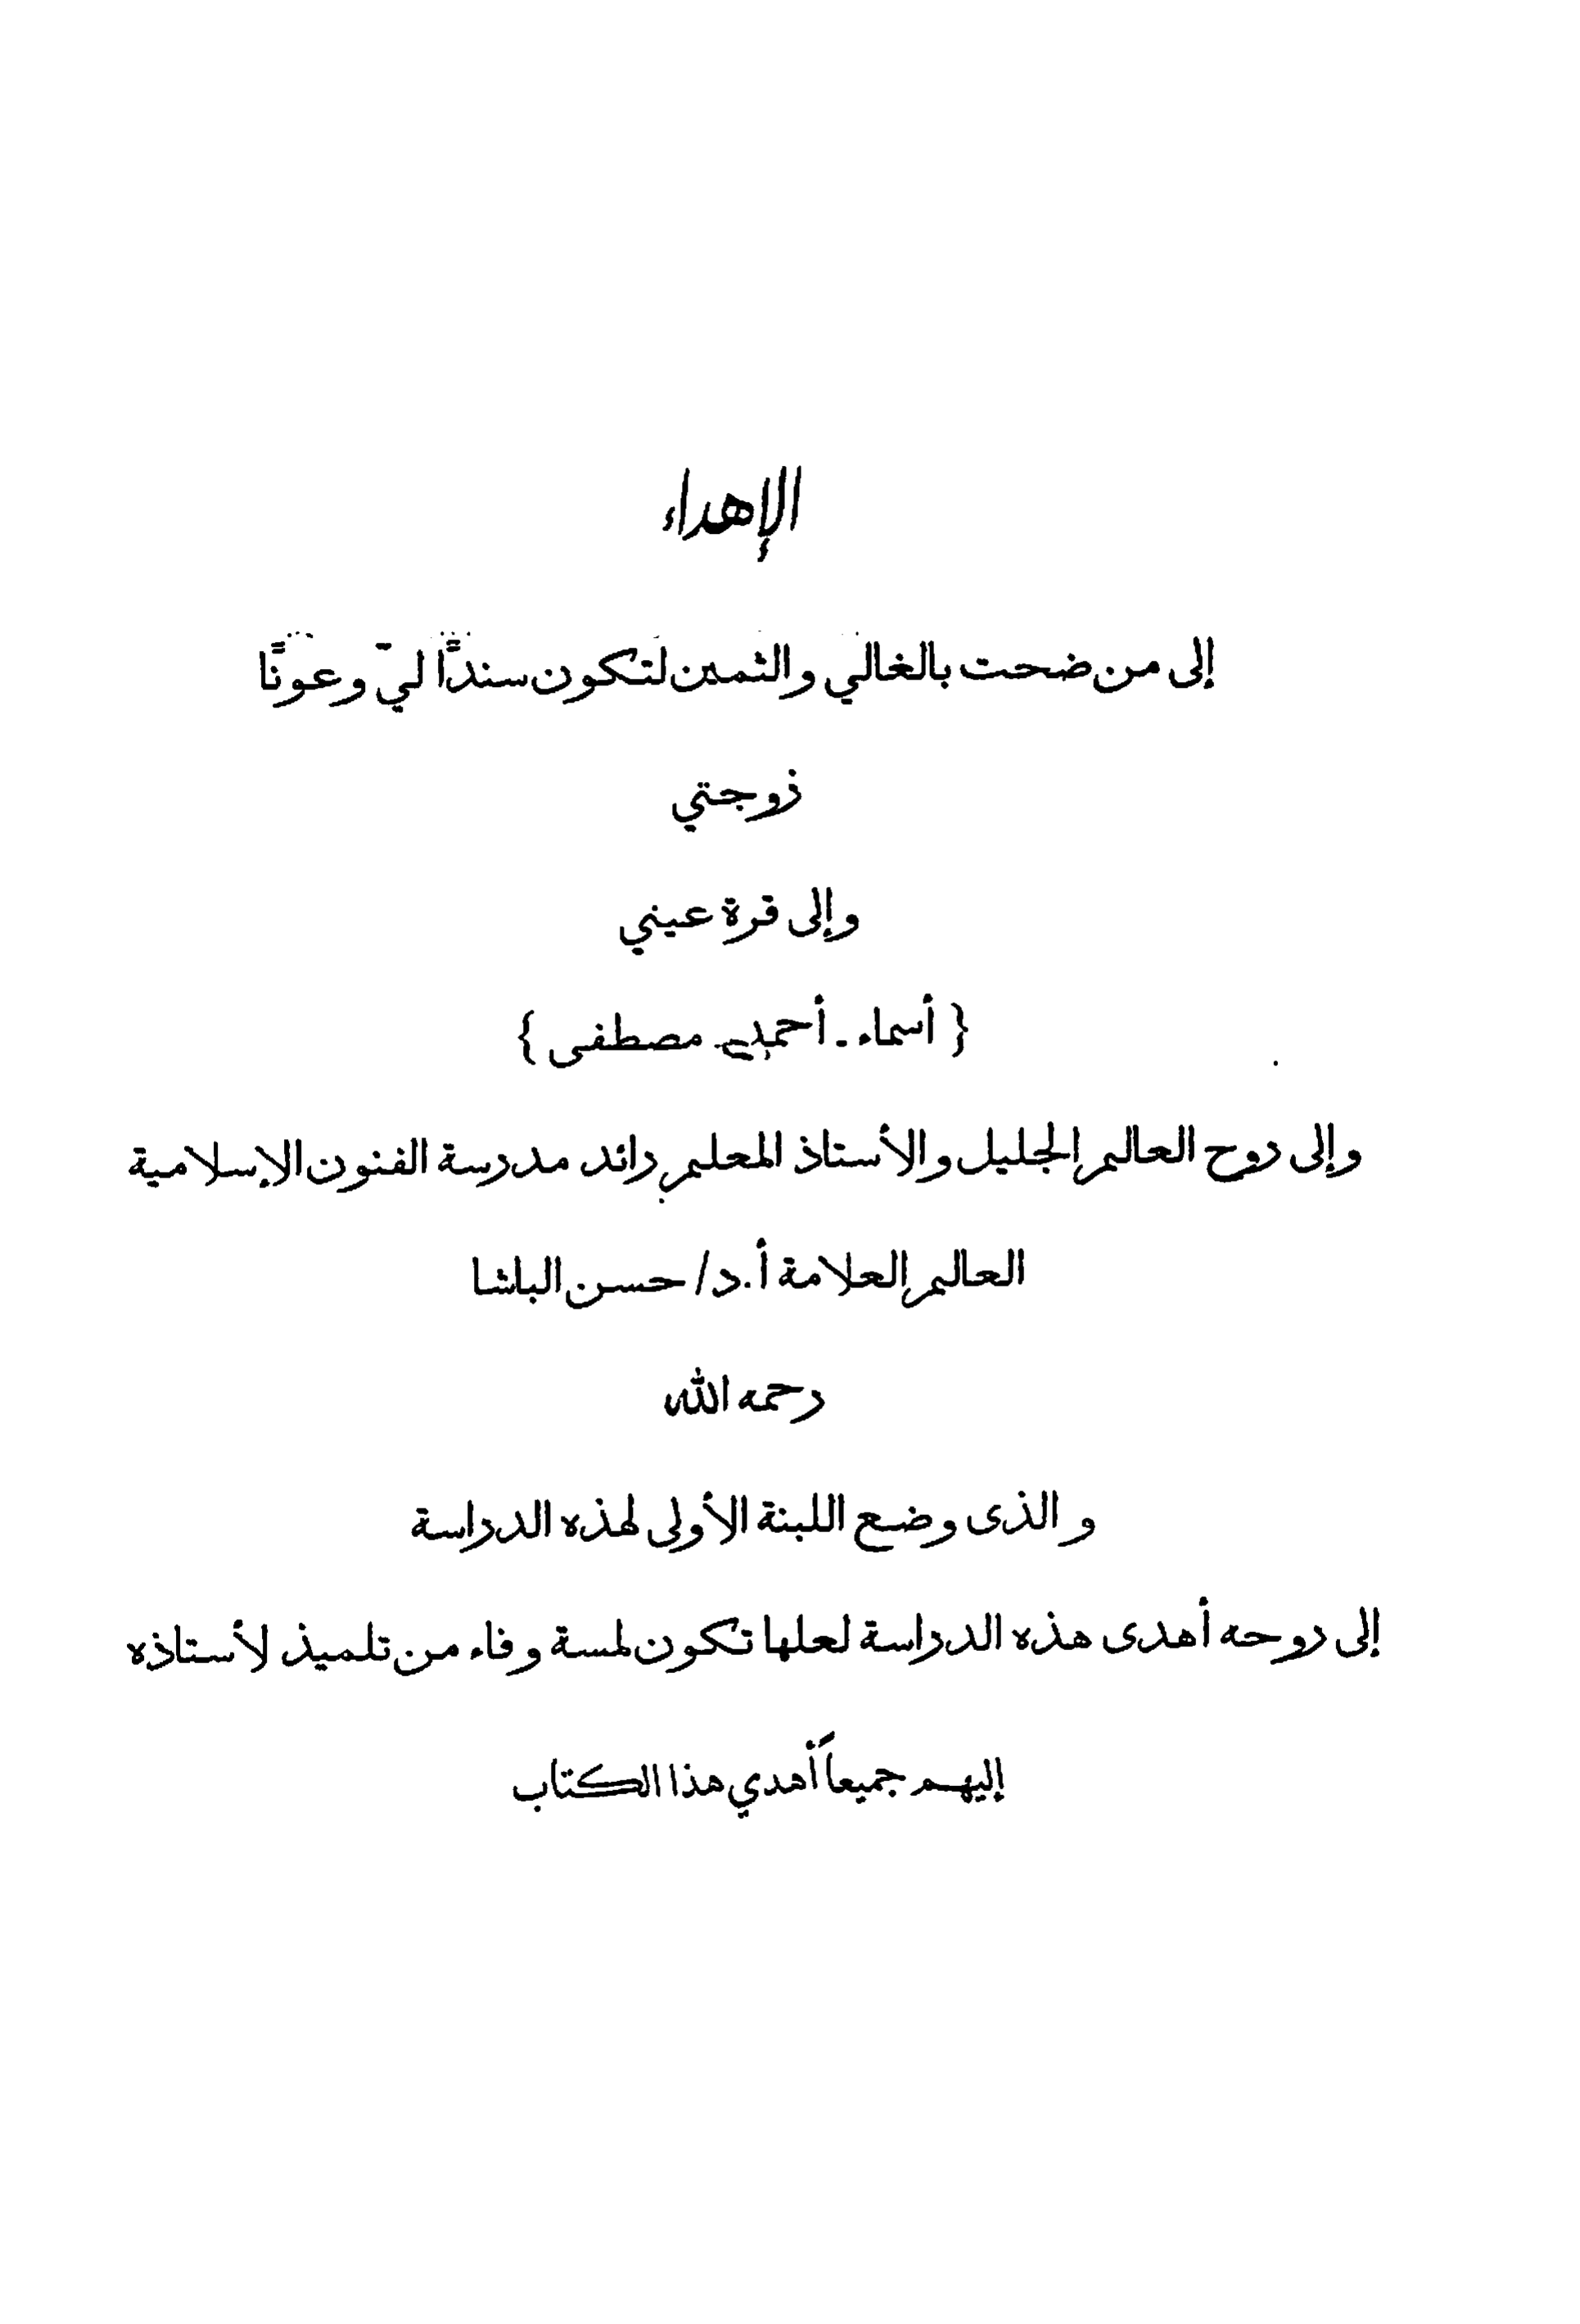 الإهداء
إلى من ضحت بالغالي والثمين لتكون سندًا ليّ وعونًا
زوجتي
وإلى قرة عيني
{ أسماء - أحمد - مصطفى }
وإلى روح العالم الجليل والأستاذ المعلم رائد مدرسة الفنون الإسلامية
العالم العلامة أ.د/ حسن الباشا
رحمه الله
والذى وضع اللبنة الأولى لهذه الدراسة
إلى روحه أهدى هذه الدراسة لعلها تكون لمسة وفاء من تلميذ لأستاذه
إليهم جميعاً أهدي هذا الكتاب